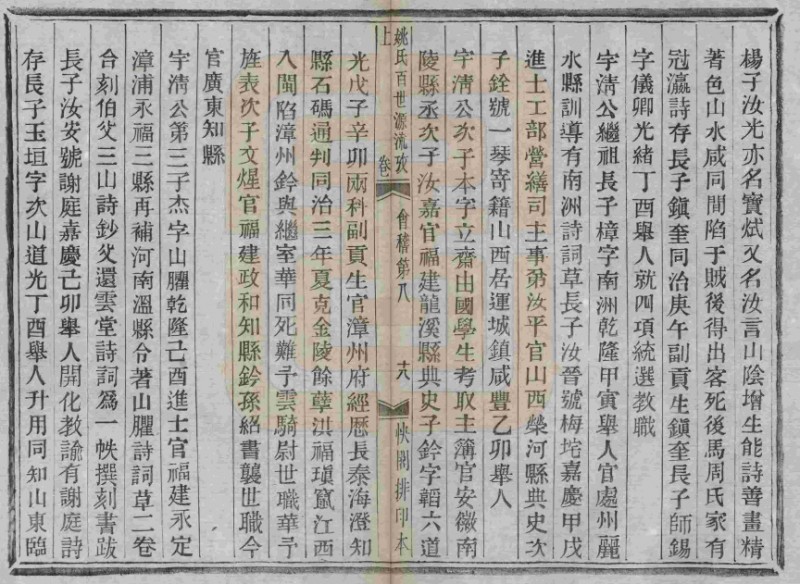 楊子汝光亦名寶斌又名汝言山陰增生能詩善畫精
著色山水咸同間陷于賊後得出客死後馬周氏家有
冠瀛詩存長子鎮奎同治庚午副貢生鎮奎長子師錫
字儀卿光緒丁酉舉人就四項統選教職
宇清公繼祖長子樟字南洲乾隆甲寅舉人官處州麗
水縣訓導有南洲詩詞草長子汝晉號梅坨嘉慶甲戌
進士工部營繕司主事弟汝平官山西榮河縣典史次
子銓號一琴寄籍山西居運城鎮咸豐乙卯舉人
宇清公次子本字立齋山國學生考取主簿官安徽南
陵縣丞次子汝嘉官福建龍溪縣典史子鈐字韜六道
姚氏百世源流攷 卷上 會稽第八 十八 快閣排印本
光戊子辛卯兩科副貢生官漳州府經歷長泰海澄知
縣石碼通判同治三年夏克金陵餘孽洪福瑱竄江西
入閩陷漳州鈐與繼室華同死難予雲騎尉世職華予
旌表次子文煋官福建政和知縣鈐孫紹書襲世職今
官廣東知縣
宇清公第三子杰字山臞乾隆己酉進士官福建永定
漳浦永福三縣再補河南溫縣令著山臞詩詞草二卷
合刻伯父三山詩鈔父還雲堂詩詞為一帙撰刻書跋
長子汝安號謝庭嘉慶己卯舉人開化教諭有謝庭詩
存長子玉垣字次山道光丁酉舉人升用同知山東臨